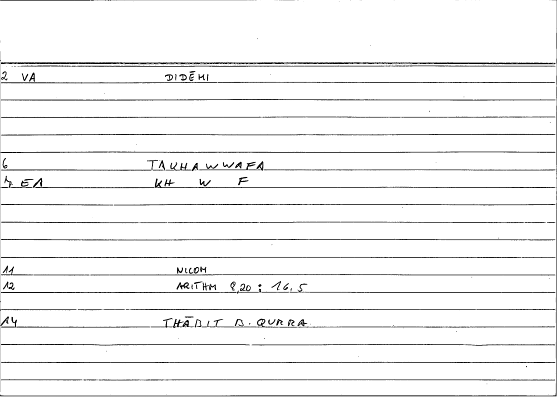 2 VA DIDĒMI
6 TAKHAWWAFA
7 EA KH W F
11 NICOM
12 ARITHM 8,20 : 16,5
14 THĀBIT B. QURRA